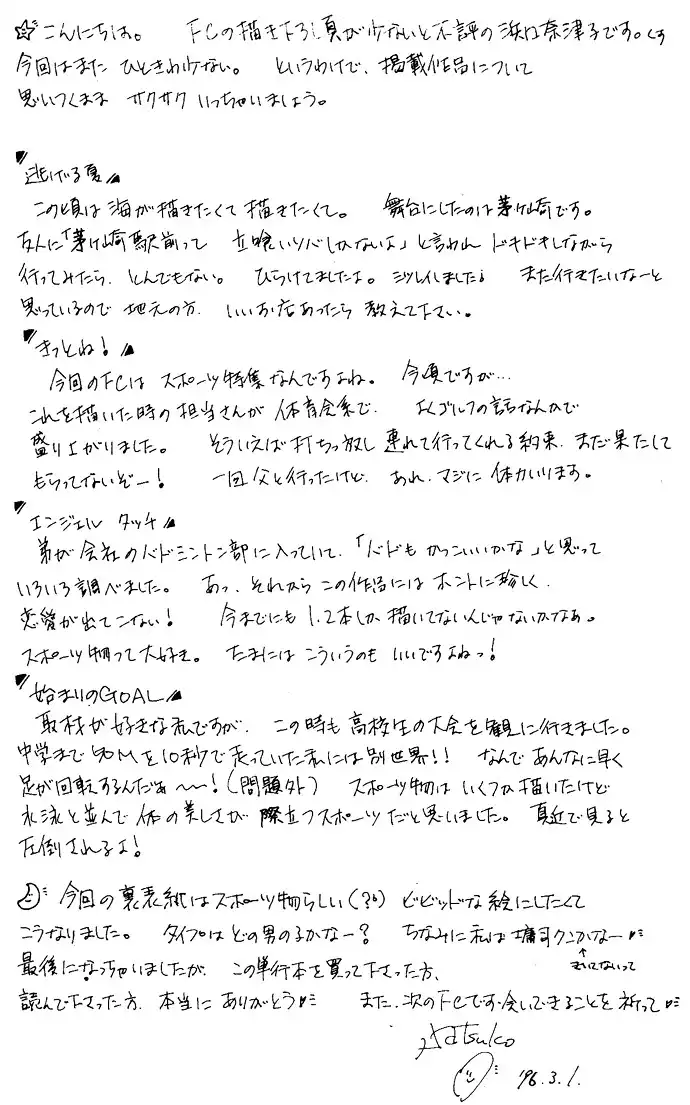 ☆こんにちは。 FCの描き下ろし頁が少ないと不評の浜口奈津子です。くす
今回はまた ひときわ少ない。 というわけで、掲載作品について
思いつくまま サクサク いっちゃいましょう。
"逃げる夏"
この頃は海が描きたくて描きたくて。 舞台にしたのは茅ケ崎です。
友人に「茅ケ崎駅前って 立喰いソバしかないよ」と言われ ドキドキしながら
行ってみたら、とんでもない。 ひらけてましたよ。シツレイしました。 また行きたいなーと
思っているので 地元の方、いいお店あったら 教えて下さい。
"きっとね!"
今回のFCは スポーツ特集なんですよね。 今頃ですが…
これを描いた時の担当さんが 体育会系で、 よくゴルフの話なんかで
盛り上がりました。 そういえば打ちっ放し 連れて行ってくれる約束、まだ果たして
もらってないぞー! 一回父と行ったけど、あれ、マジに 体力いります。
"エンジェル タッチ"
弟が会社のバドミントン部に入っていて、「バドも かっこいいかな」と思って
いろいろ調べました。 あっ、それから この作品には ホントに珍しく、
恋愛が出てこない! 今までにも 1、2本しか描いてないんじゃないかなあ。
スポーツ物って大好き。 たまには こういうのも いいですよねっ!
"始まりのGOAL"
取材が好きな私ですが、この時も 高校生の大会を観に行きました。
中学まで50Mを10秒で走っていた私には別世界!! なんで あんなに早く
足が回転するんだぁ〜〜!(問題外) スポーツ物は いくつか描いたけど
水泳と並んで 体の美しさが 際立つスポーツだと思いました。 真近で見ると
圧倒されるよ!
今回の裏表紙はスポーツ物らしい(?) ビビッドな絵にしたくて
こうなりました。 タイプはどの男のコかなー? ちなみに私は クンかなー
きいてないって
最後になっちゃいましたが、この単行本を買って下さった方、
読んで下さった方、本当に ありがとう また、次のFCでお会いできることを 祈って
Natsuko
'96.3.1.